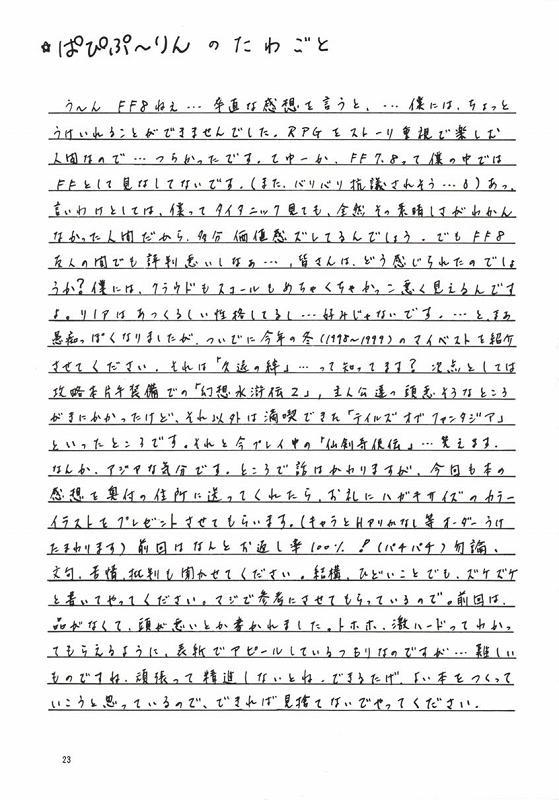 ☆ぱぴぷ～りんのたわごと
う～ん FF8ねえ…率直な感想を言うと、…僕には、ちょっと
うけいれることができませんでした。RPGをストーリ重視で楽しむ
人間なので…つらかったです。てゆーか、FF7.8って僕の中では
FFとして見なしてないです。(また、バリバリ抗議されそう…6)あっ、
言いわけとしては、僕ってタイタニック見ても、全然その素晴しさがわかん
なかった人間だから、多分価値感ズレてるんでしょう。でもFF8
友人の間でも評判悪いしなぁ…、皆さんは、どう感じられたのでしょ
うか?僕には、クラウドもスコールもめちゃくちゃかっこ悪く見えるんです
よ。リノアはあつくるしい性格してるし…好みじゃないです。…と、まぁ
愚痴っぽくなりましたが、ついでに今年の冬(1998～1999)のマイベストを紹介
させてください。それは「久遠の絆」…って知ってます?次点としては
攻略本片手装備での「幻想水滸伝2」,主人公達の頭悪そうなところ
がきにかかったけど、それ以外は満喫できた「テイルズオブファンタジア」
といったところです。それと今プレイ中の「仙剣奇侠伝」…笑えます。
なんか、アジアな気分です。ところで話はかわりますが、今回も本の
感想を奥付の住所に送ってくれたら、お礼にハガキサイズのカラー
イラストをプレゼントさせてもらいます。(キャラとHアリかなし等オーダーうけ
たまわります)前回はなんとお返し率100%!(パチパチ)勿論、
文句、苦情、批判も聞かせてください。結構、ひどいことでも、ズケズケ
と書いてやってください。マジで参考にさせてもらっているので。前回は、
品がなくて、頭が悪いとか書かれました。トホホ、激ハードってわかっ
てもらえるように、表紙でアピールしているつもりなのですが…難しい
ものですね、頑張って精進しないとね。できるだけ、よい本をつくって
いこうと思っているので、できれば見捨てないでやってください。
23